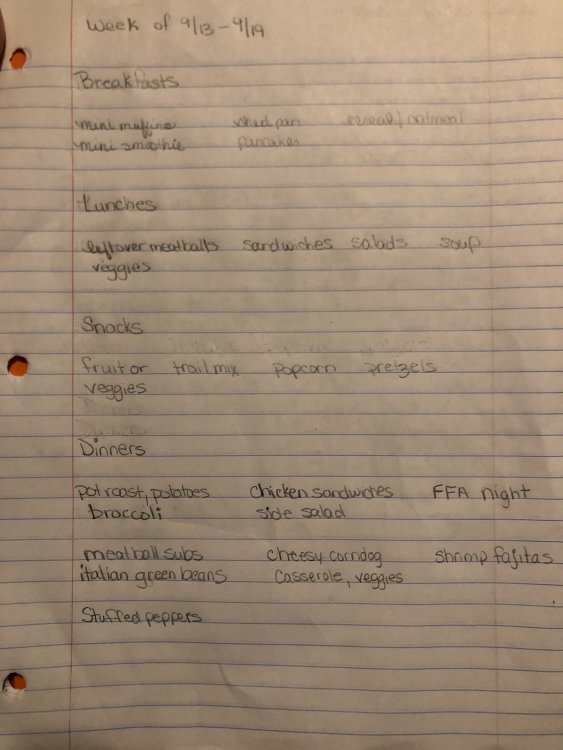 Week of 9/13 - 9/19
Breakfasts
mini muffins sheet pan cereal/oatmeal
mini smoothie pancakes
Lunches
leftover meatballs sandwiches salads soup
veggies
Snacks
fruit or trail mix popcorn pretzels
veggies
Dinners
pot roast, potatoes chicken sandwiches FFA night
broccoli side salad
meatball subs cheesy corndog shrimp fajitas
italian green beans casserole, veggies
Stuffed peppers